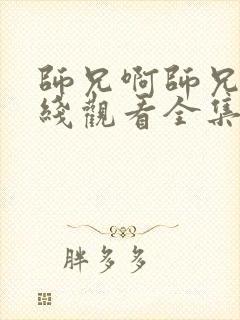 師兄啊師兄
綫觀看全集
胖多多